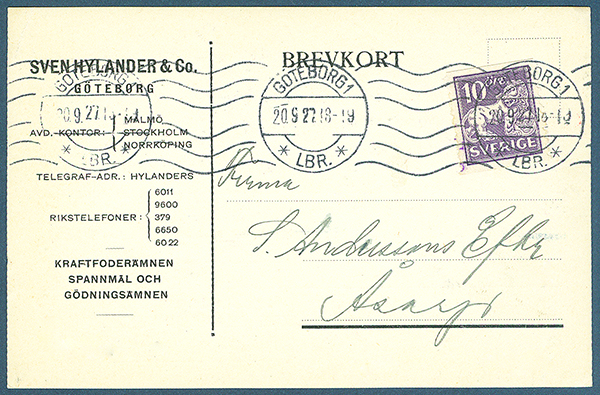 SVEN HYLANDER & Co.
GÖTEBORG
AVD.-KONTOR:
MALMÖ
STOCKHOLM
NORRKÖPING
TELEGRAF-ADR.: HYLANDERS
RIKSTELEFONER:
6011
9600
379
6650
6022
KRAFTFODERÄMNEN
SPANNMÅL OCH
GÖDNINGSÄMNEN
BREVKORT
GÖTEBORG 1
20.9.27.18-19
* LBR. *
GÖTEBORG 1
20.9.27 18-19
* LBR. *
GÖTEBORG 1
20.9.27.18-19
* LBR. *
10
SVERIGE
Firma
S. Anderssons Eftr
Åsarp